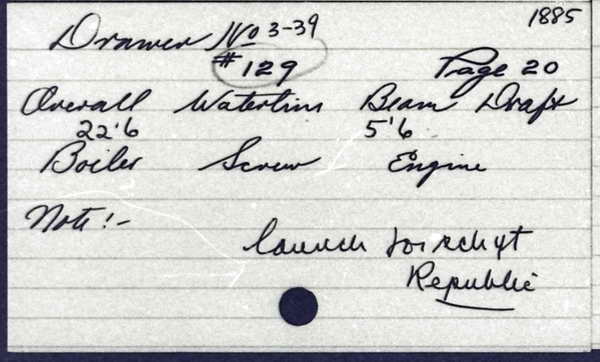 1885
Drawer No 3-39
#129
Page 20
Overall Waterline Beam Draft
22'6 5'6
Boiler Screw Engine
Note!-
launch for schyt
Republic